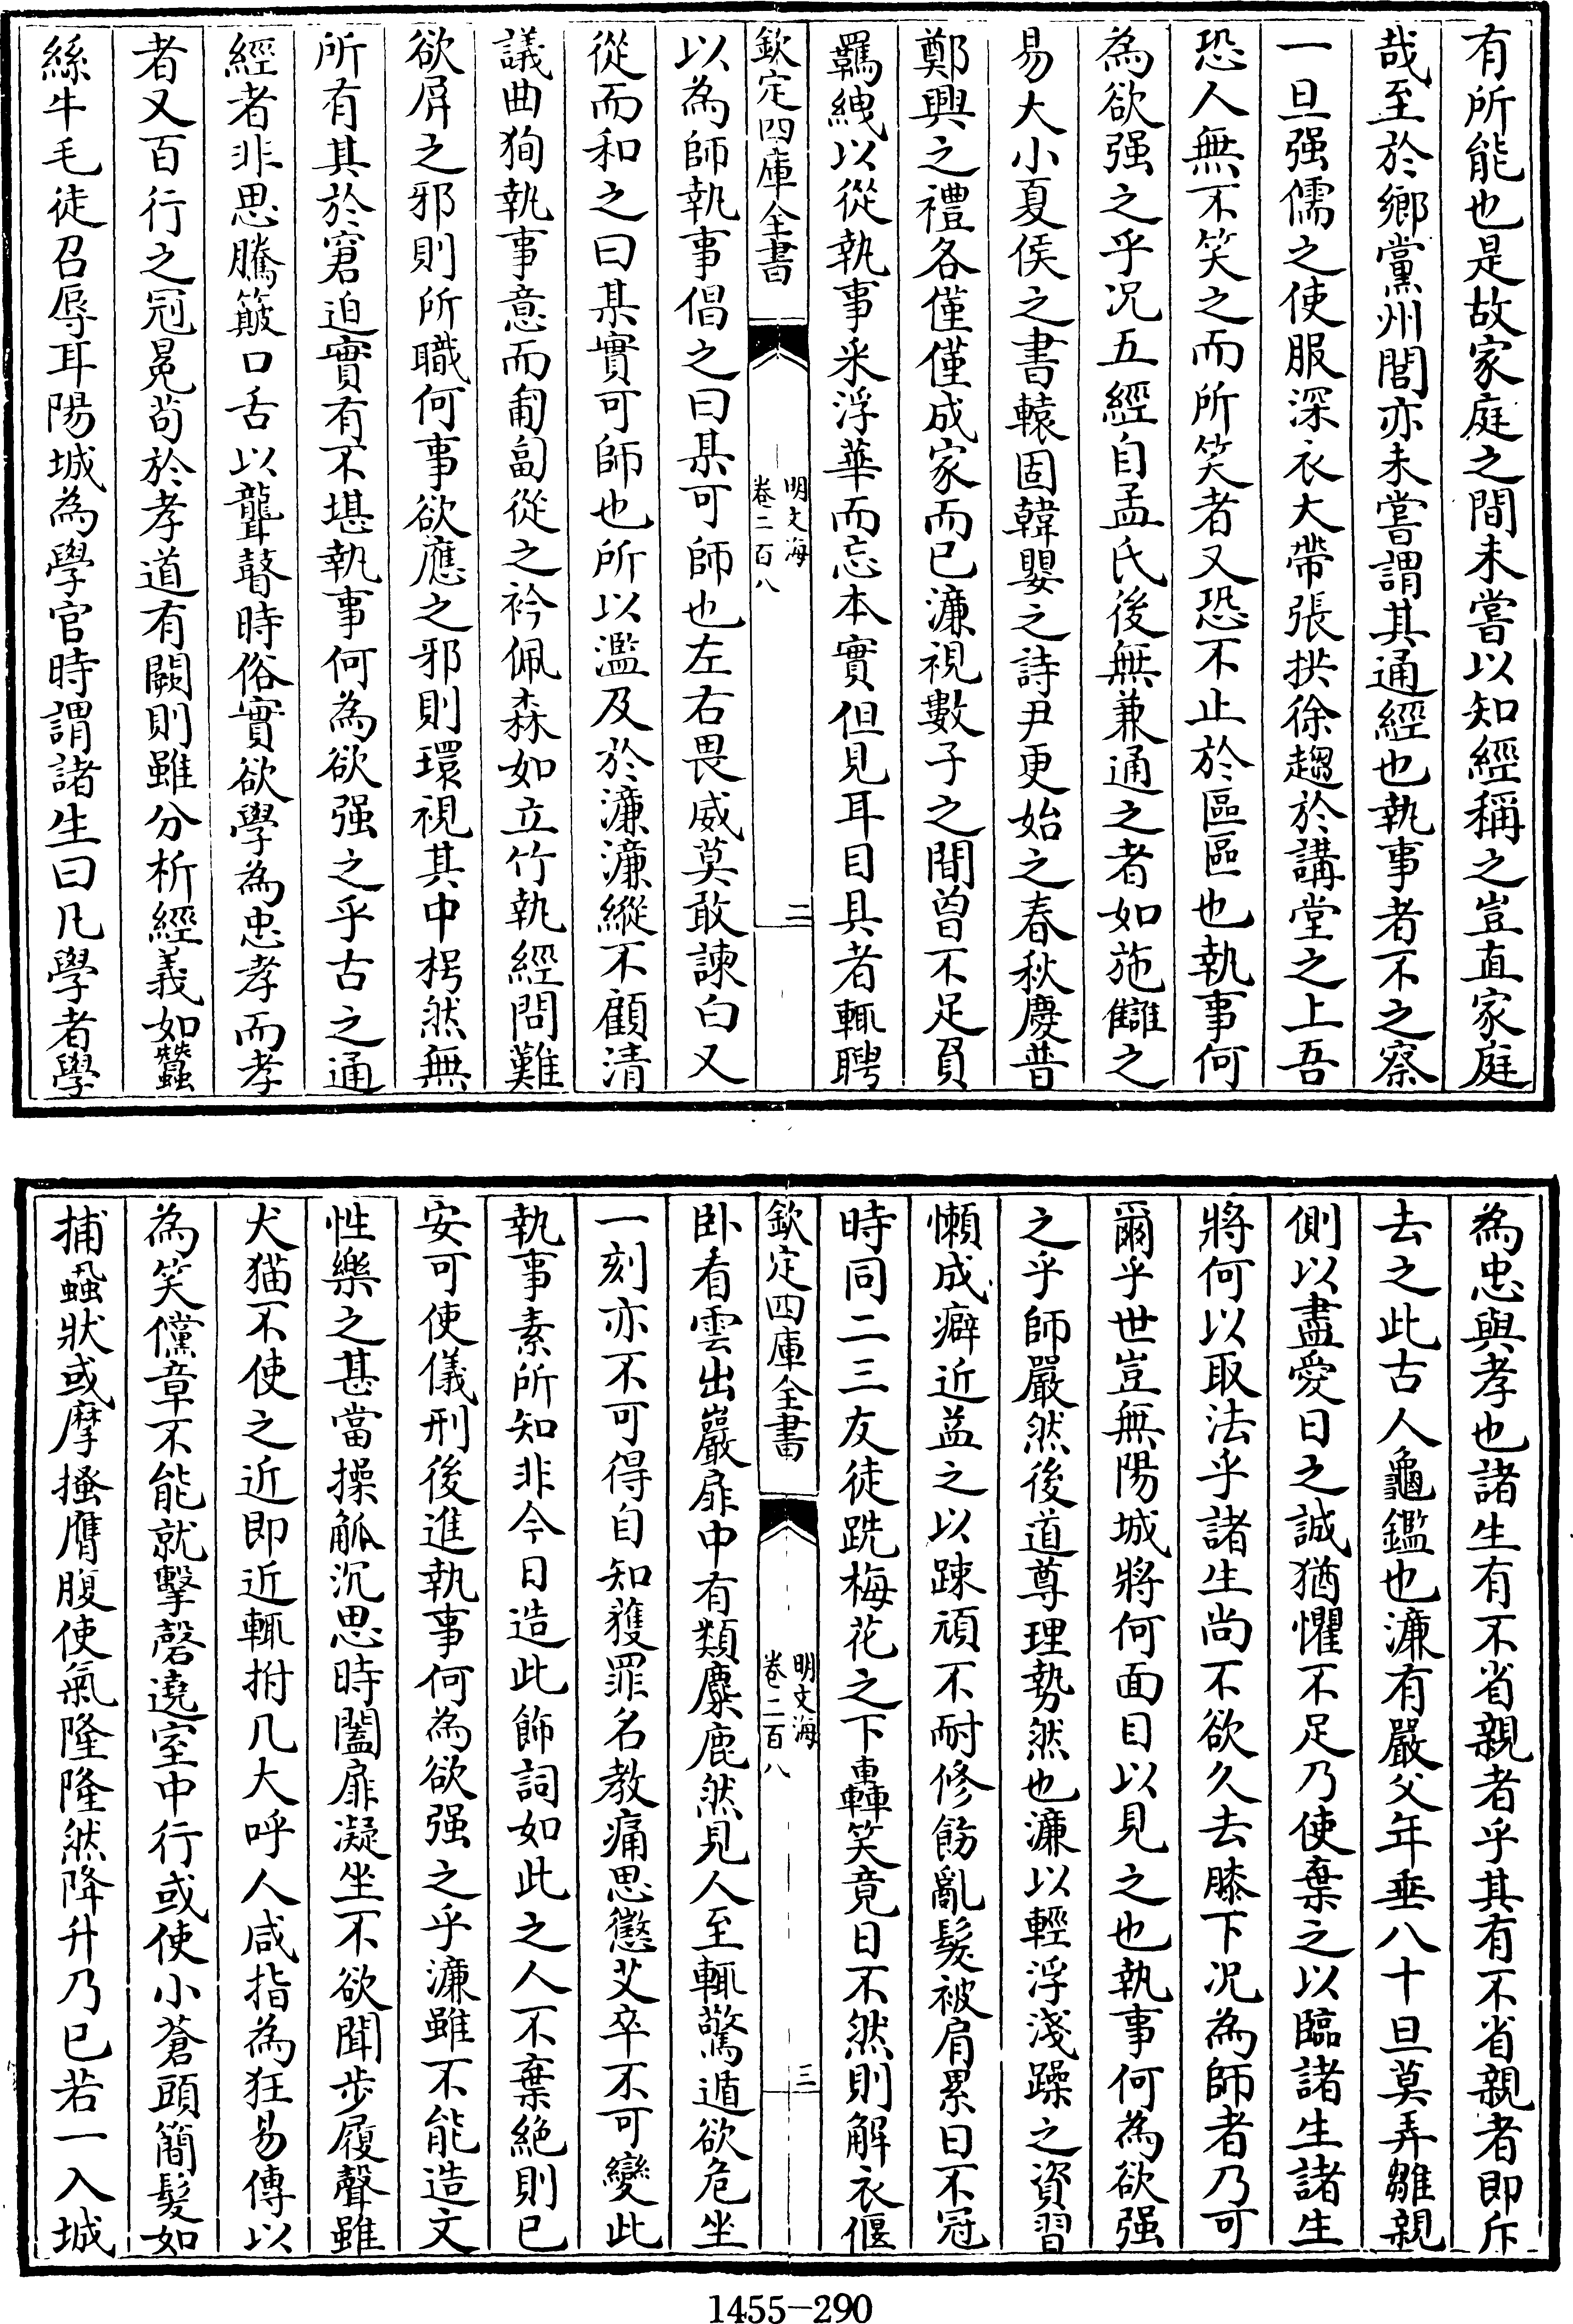 有所能也是故家庭之間未嘗以知經稱之豈直家庭
哉至於鄉黨州閭亦未嘗謂其通經也執事者不之察
一旦强儒之使服深衣大帶張拱徐趨於講堂之上吾
恐人無不笑之而所笑者又恐不止於區區也執事何
為欲强之乎况五經自孟氏後無兼通之者如施讎之
易大小夏侯之書轅固韓嬰之詩尹更始之春秋慶普
鄭興之禮各僅僅成家而已濂視數子之間曾不足負
羈絏以從執事釆浮華而忘本實但見耳目具者輒聘
欽定四庫全書
明文海
卷二百八
二
以為師執事倡之曰某可師也左右畏威莫敢諫白又
從而和之曰某實可師也所以濫及於濂濂縱不顧清
議曲狥執事意而匍匐從之衿佩森如立竹執經問難
欲屏之邪則所職何事欲應之邪則環視其中枵然無
所有其於窘迫實有不堪執事何為欲强之乎古之通
經者非思騰簸口舌以聾瞽時俗實欲學為忠孝而孝
者又百行之冠冕苟於孝道有闕則雖分析經義如蠶
絲牛毛徒召辱耳陽城為學官時謂諸生曰凡學者學
為忠與孝也諸生有不省親者乎其有不省親者即斥
去之此古人龜鑑也濂有嚴父年垂八十旦莫弄雛親
側以盡愛日之誠猶懼不足乃使棄之以臨諸生諸生
將何以取法乎諸生尚不欲久去膝下况為師者乃可
爾乎世豈無陽城將何面目以見之也執事何為欲强
之乎師嚴然後道尊理勢然也濂以輕浮淺躁之資習
懶成癖近益之以踈頑不耐修飭亂髮被肩累日不冠
時同二三友徒跣梅花之下轟笑竟日不然則解衣偃
欽定四庫全書
明文海
卷二百八
三
卧看雲出巖扉中有類麋鹿然見人至輒驚遁欲危坐
一刻亦不可得自知獲罪名教痛思懲艾卒不可變此
執事素所知非今日造此飾詞如此之人不棄絶則已
安可使儀刑後進執事何為欲强之乎濂雖不能造文
性樂之甚當操觚沉思時闔扉凝坐不欲聞步履聲雖
犬猫不使之近即近輒拊几大呼人咸指為狂易傳以
為笑儻章不能就擊磬遶室中行或使小蒼頭簡髮如
捕蝨狀或摩搔膺腹使氣隆隆然降升乃已若一入城
1455—290